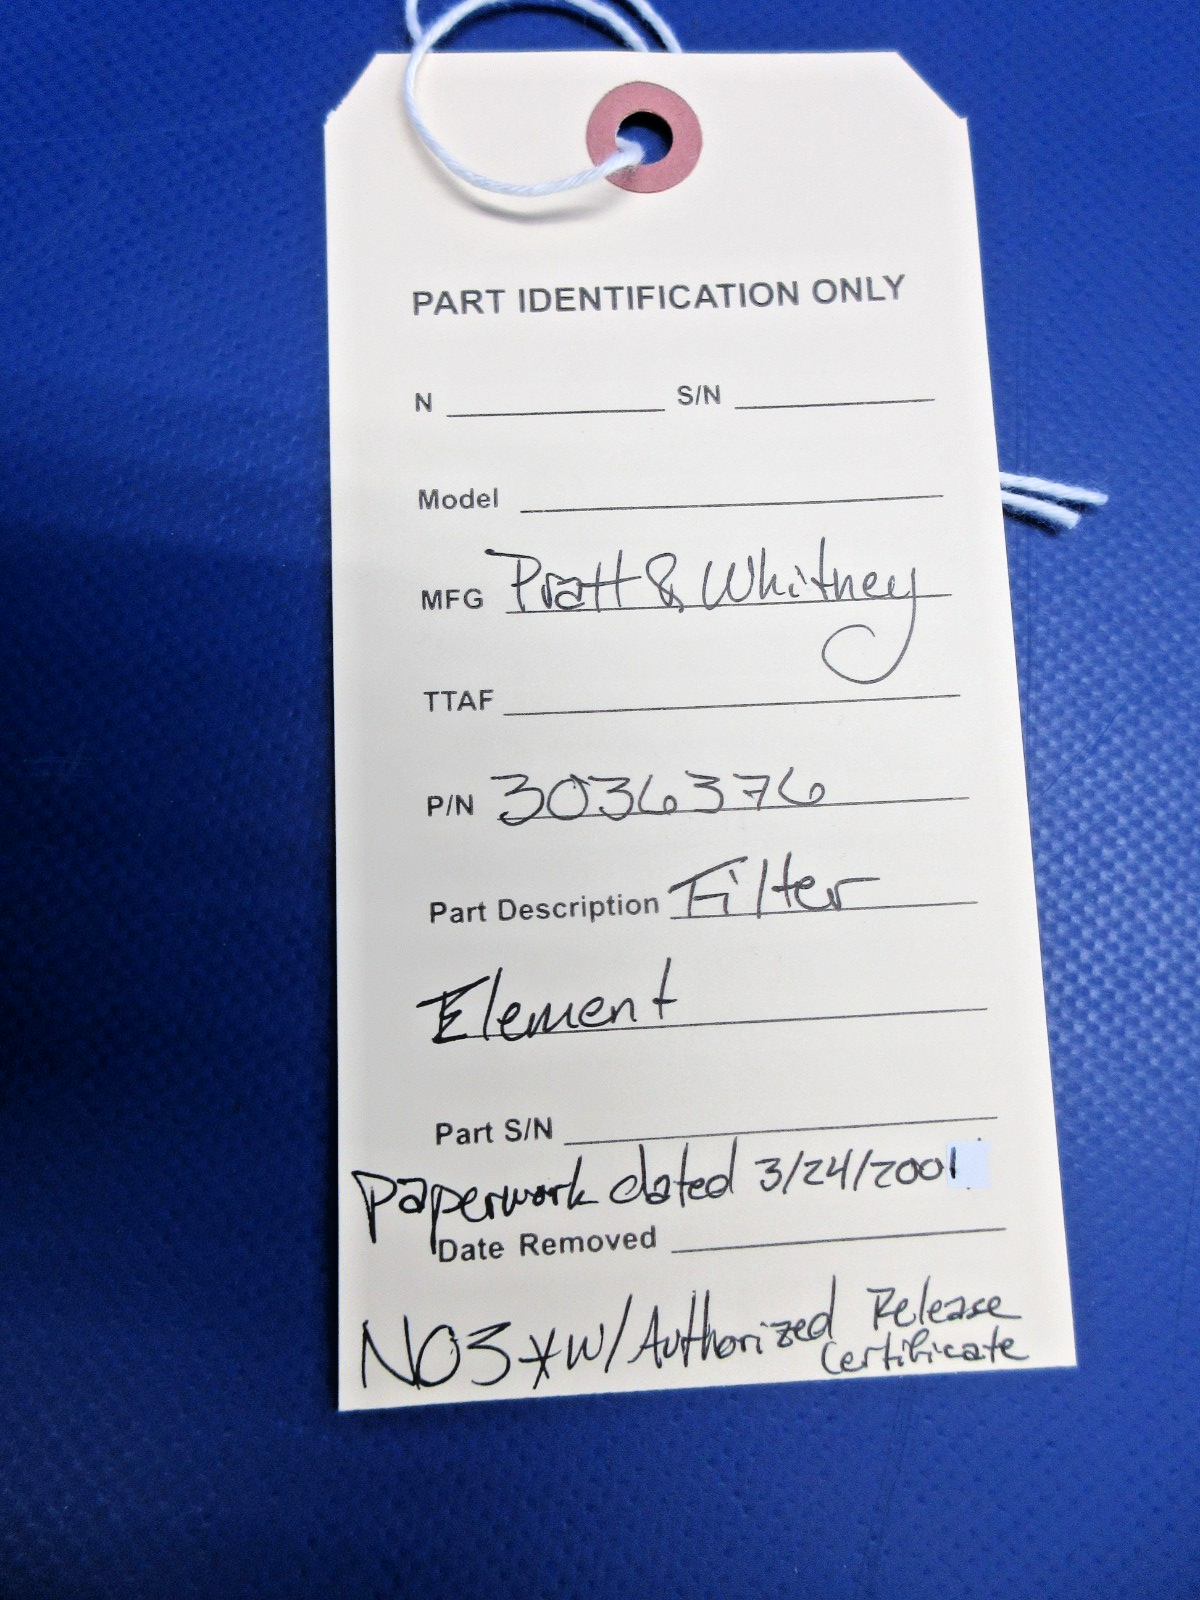 PART IDENTIFICATION ONLY
N S/N
Model
MFG Pratt & Whitney
TTAF
P/N 3036376
Part Description Filter
Element
Part S/N
paperwork dated 3/24/2001
Date Removed
NO3 *W/Authorized Release
Certificate